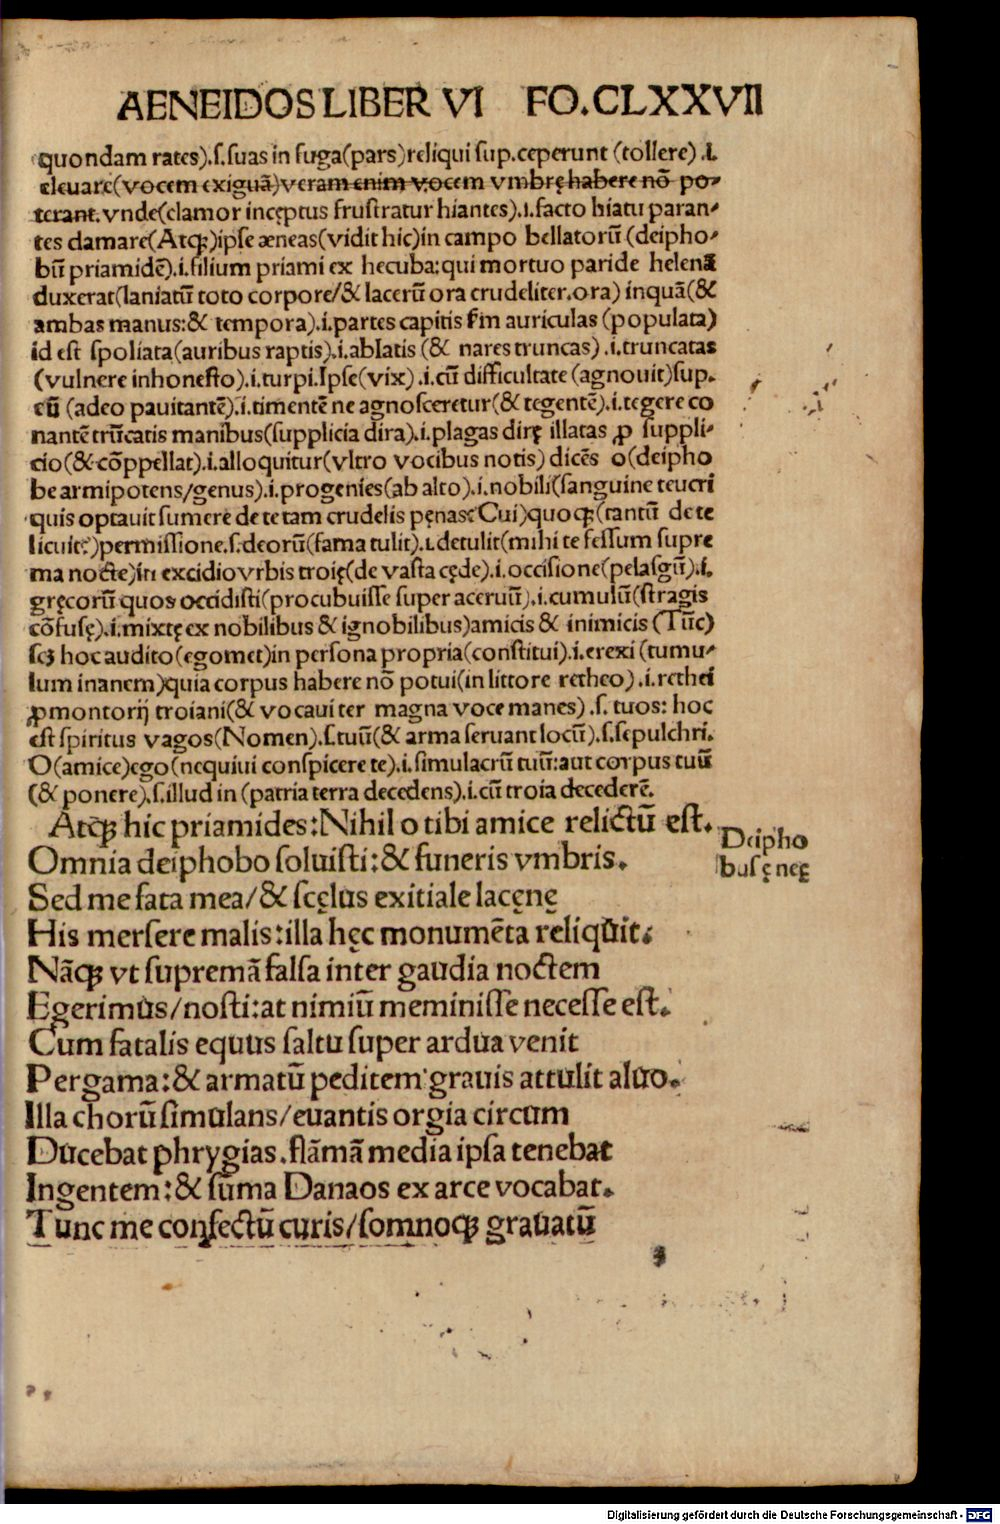 AENEIDOS LIBER VI FO.CLXXVII
quondam rates).ſ.ſuas in fuga(pars)reliqui ſup.ceperunt (tollere) .i.
eleuare(vocem exiguã)veram enim vocem vmbrę habere nõ po-
terant. vnde(clamor incęptus fruſtratur hiantes).i.facto hiatu paran-
tes clamare(Atqꝫ)ipſe æneas(vidit hic)in campo bellatorũ (deipho-
bũ priamidẽ).i.filium priami ex hecuba:qui mortuo paride helenã
duxerat(laniatũ toto corpore/& lacerũ ora crudeliter.ora) inquã(&
ambas manus:& tempora).i.partes capitis ſm auriculas (populata)
id eſt ſpoliata(auribus raptis).i.ablatis (& nares truncas) .i.truncatas
(vulnere inhoneſto).i.turpi.Ipſe(vix) .i.cũ difficultate (agnouit)ſup.
eũ (adeo pauitantẽ).i.timentẽ ne agnoſceretur(& tegentẽ).i.tegere co
nantẽ trũcatis manibus(ſupplicia dira).i.plagas dirę illatas ꝓ ſuppli-
cio(& cõpellat).i.alloquitur(vltro vocibus notis) dicẽs o(deipho
be armipotens/genus).i.progenies(ab alto).i.nobili(ſanguine teucri
quis optauit ſumere de te tam crudelis pęnas? Cui)quoqꝫ(tantũ de te
licuit?)permiſſione.ſ.deorũ(fama tulit).i.detulit(mihi te feſſum ſupre
ma nocte)in excidio vrbis troię(de vaſta cęde).i.occiſione(pelaſgũ).i.
gręcorũ quos occidiſti(procubuiſſe ſuper aceruũ).i.cumulũ(ſtragis
cõfuſę).i.mixtę ex nobilibus & ignobilibus)amicis & inimicis (Tũc)
ſcꝫ hoc audito(egomet)in perſona propria(conſtitui).i.erexi (tumu-
lum inanem)quia corpus habere nõ potui(in littore retheo) .i.rethei
ꝓmontorij troiani(& vocaui ter magna voce manes) .ſ. tuos: hoc
eſt ſpiritus vagos(Nomen).ſ.tuũ(& arma ſeruant locũ).ſ.ſepulchri.
O(amice)ego(nequiui conſpicere te).i.ſimulacrũ tuũ:aut corpus tuũ
(& ponere).ſ.illud in (patria terra decedens).i.cũ troia decederẽ.
Atqꝫ hic priamides:Nihil o tibi amice relictũ eſt.
Deipho
bus ęneę
Omnia deiphobo ſoluiſti:& funeris vmbris.
Sed me fata mea/& ſcęlus exitiale lacęnę
His merſere malis:illa hęc monumẽta reliquit.
Nãqꝫ vt ſupremã falſa inter gaudia noctem
Egerimus/noſti:at nimiũ meminiſſe neceſſe eſt.
Cum fatalis equus ſaltu ſuper ardua venit
Pergama:& armatũ peditem grauis attulit aluo.
Illa chorũ ſimulans/euantis orgia circum
Ducebat phrygias.flãmã media ipſa tenebat
Ingentem:& ſũma Danaos ex arce vocabat.
Tunc me confectũ curis/ſomnoqꝫ grauatũ
Digitalisierung gefördert durch die Deutsche Forschungsgemeinschaft - DFG